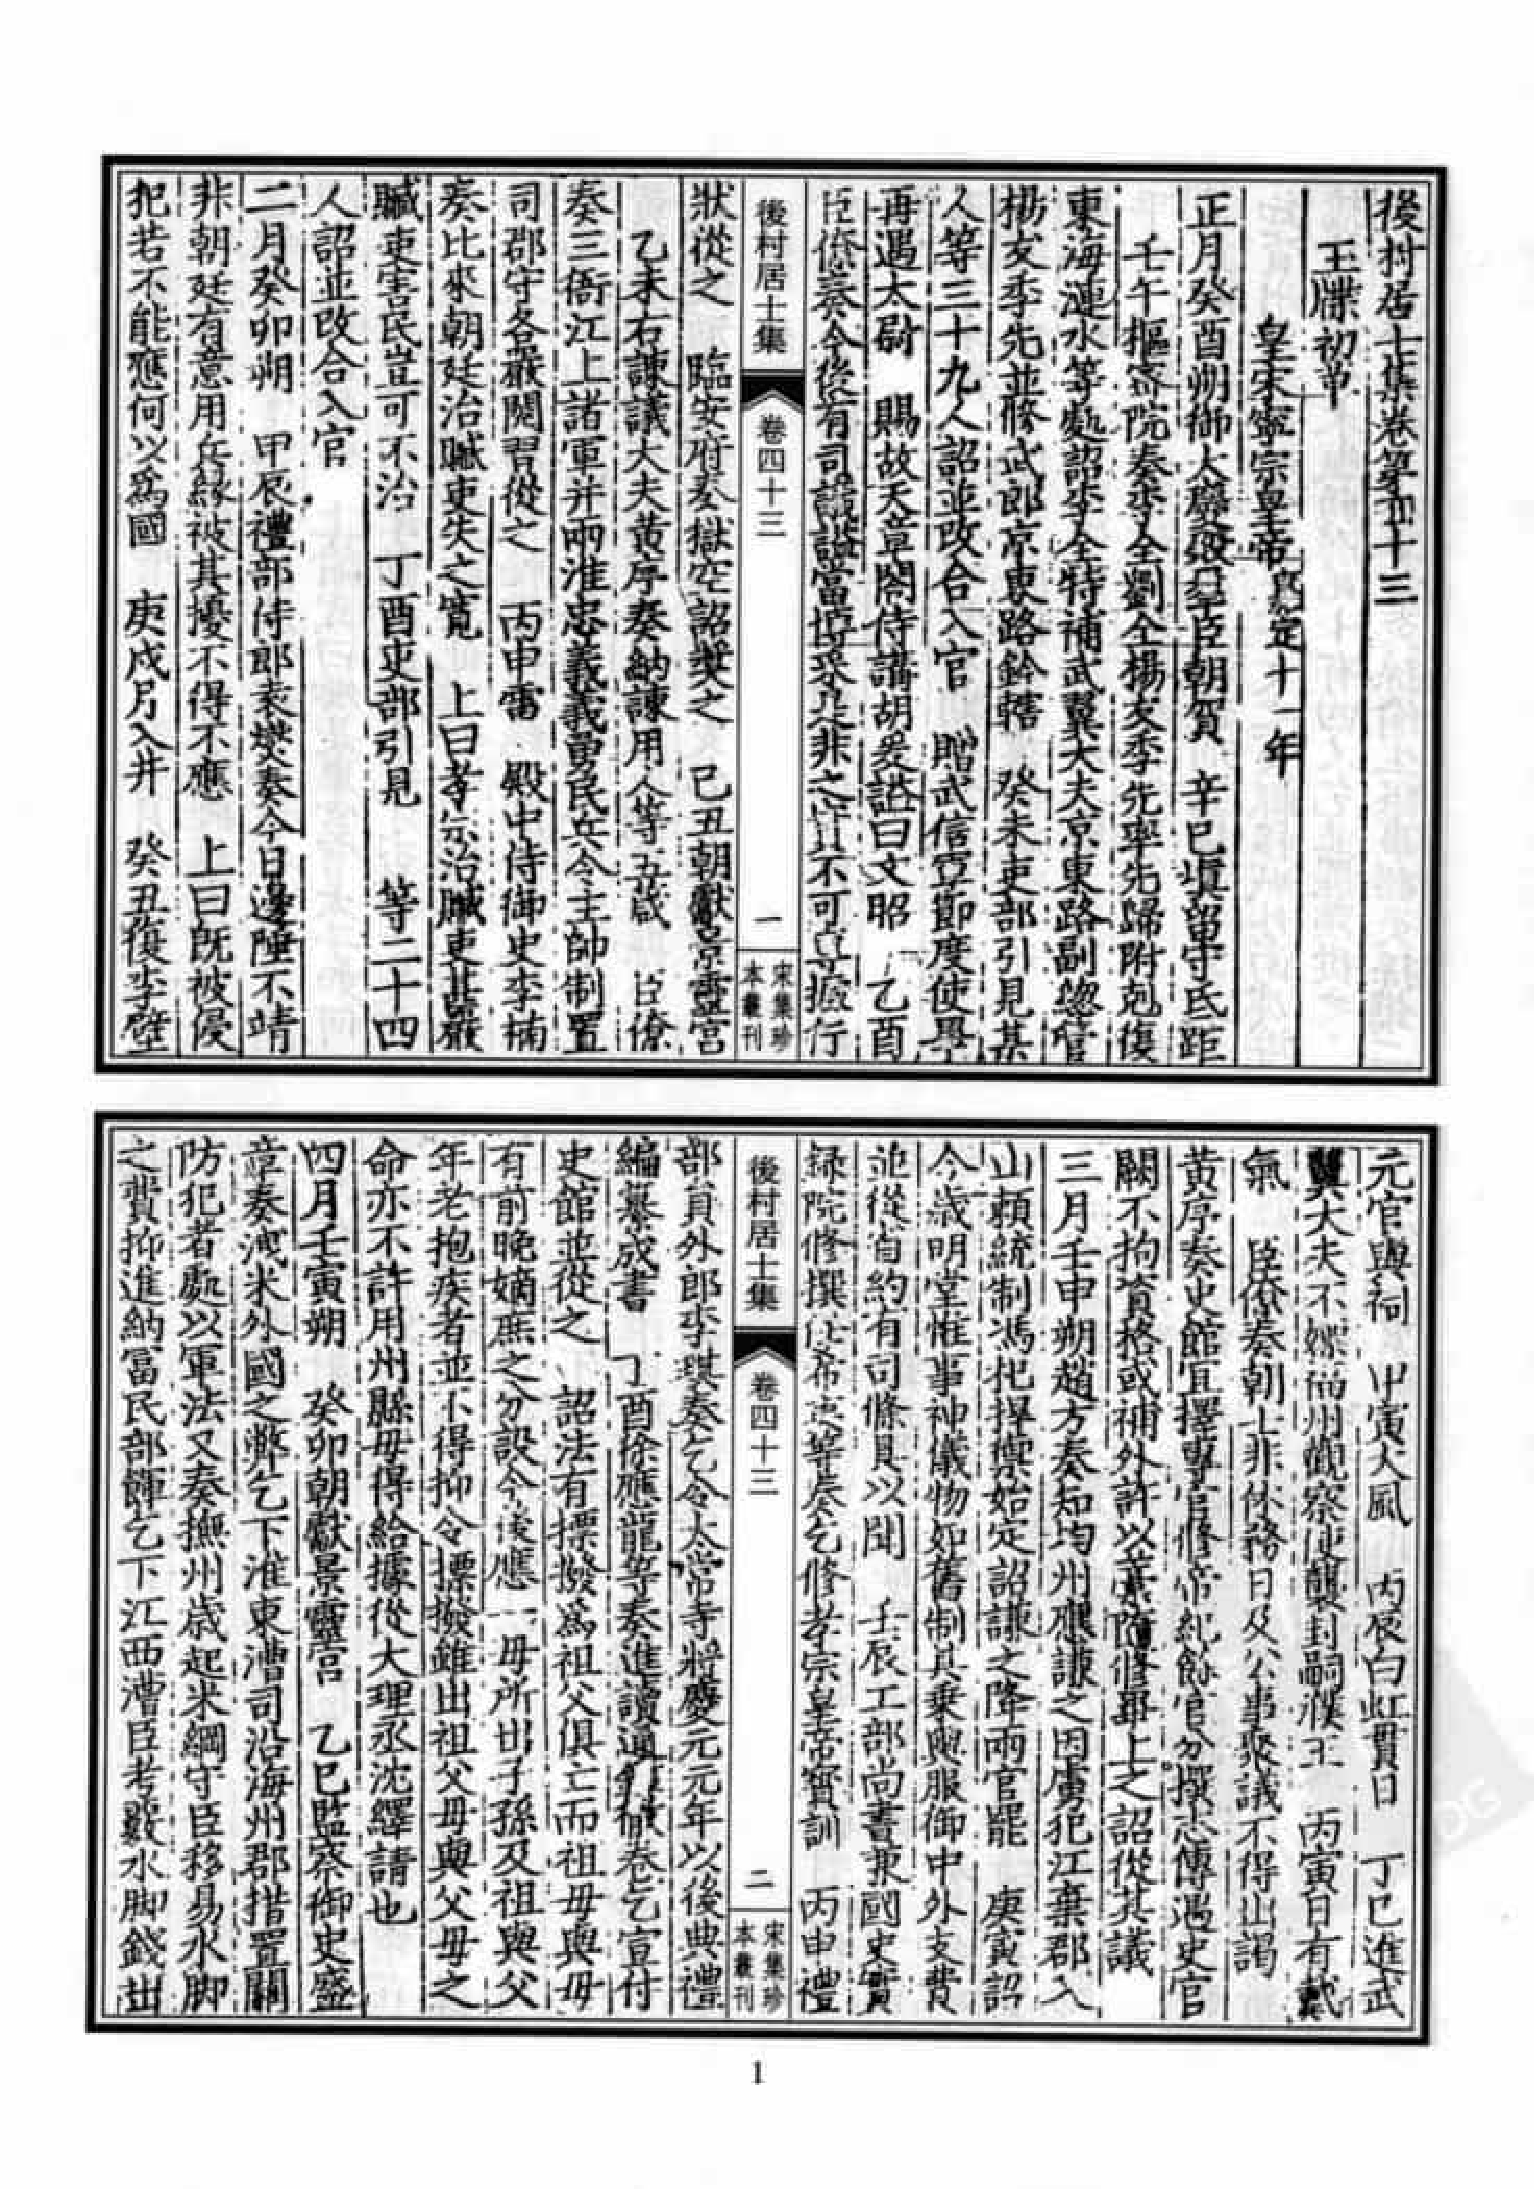 後村居士集卷第四十三
玉牒初草
皇宋寧宗皇帝嘉定十一年
正月癸酉朔御大慶殿羣臣朝賀 辛巳填留守氐距
壬午樞密院奏李全劉全楊友季先率先歸附剋復
東海漣水等處詔李全特補武翼大夫京東路副緫管
楊友季先並修武郎京東路鈐轄 癸未吏部引見其
人等三十九人詔並改合入官 贈武信軍節度使畢
再遇太尉 賜故天章閣侍講胡瑗謚曰文昭 乙酉
臣僚奏今後有司議謚當博采是非之 不可 據行
狀從之 臨安府奏獄空詔奬之 己丑朝獻景靈宮
乙未右諫議大夫黄序奏納諫用人等五箴 臣僚
奏三衙江上諸軍并兩淮忠義義勇民兵令主帥制置
司郡守各嚴閱習從之 丙申雷 殿中侍御史李楠
奏比來朝廷治贓吏失之寬 上曰孝宗治贓吏甚嚴
贓吏害民豈可不治 丁酉吏部引見 等二十四
人詔並改合入官
二月癸卯朔 甲辰禮部侍郎袁燮奏今日邊陲不靖
非朝廷有意用兵緣被其擾不得不應 上曰既被侵
犯若不能應何以爲國 庚戍月入井 癸丑復李壁
後村居士集
卷四十三
一
宋集珍
本叢刊
元官與祠 甲寅大風 丙辰白虹貫日 丁巳進武
翼大夫不嫖福州觀察使襲封嗣濮王 丙寅日有戴
氣 臣僚奏朝士非休務日及公事聚議不得出謁
黄序奏史館宜擇專官修帝紀餘官分撰志傳遇史官
闕不拘資格或補外許以藁隨修畢上之詔從其議
三月壬申朔趙方奏知均州應謙之因虜犯江棄郡入
山賴統制馮把捍禦始定詔謙之降兩官罷 庚寅詔
今歲明堂惟事神儀物如舊制其乗輿服御中外支費
並從省約有司條具以聞 壬辰工部尚書兼國史實
録院修撰任希夷等奏乞修孝宗皇帝寳訓 丙申禮
部員外郎李琪奏乞令太常寺將慶元元年以後典禮
編纂成書 丁酉徐應龍等奏進讀通鑑徹卷乞宣付
史館並從之 詔法有摽撥爲祖父俱亡而祖毋與毋
有前晚嫡庶之分設今後應 毋所出子孫及祖與父
年老抱疾者並不得抑令摽撥雖出祖父毋與父毋之
命亦不許用州縣毋得給據從大理丞沈繹請也
四月壬寅朔 癸卯朝獻景靈宮 乙巳監察御史盛
章奏洩米外國之弊乞下淮東漕司沿海州郡措置關
防犯者處以軍法又奏撫州歳起米綱守臣移易水脚
之費抑進納冨民部餫乞下江西漕臣考覈水脚錢出
後村居士集
卷四十三
二
宋集珍
本叢刊
1